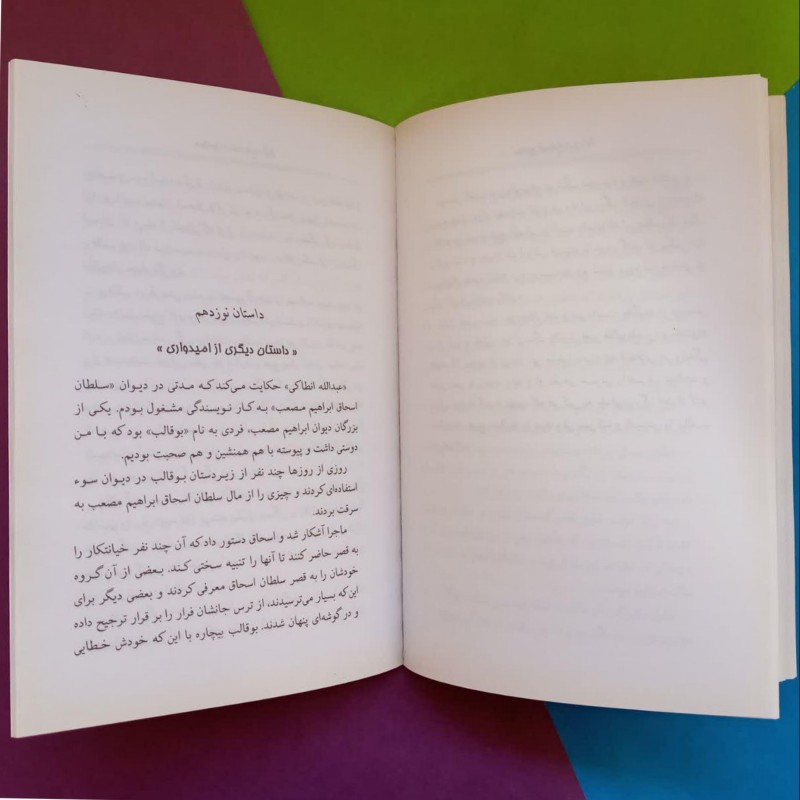 داستان نوزدهم
« داستان دیگری از امیدواری »
«عبدالله انطاکی» حکایت می‌کند که مدتی در دیوان «سلطان
اسحاق ابراهیم مصعب» به کار نویسندگی مشغول بودم. یکی از
بزرگان دیوان ابراهیم مصعب، فردی به نام «بوقالب» بود که با من
دوستی داشت و پیوسته با هم همنشین و هم صحبت بودیم.
روزی از روزها چند نفر از زیردستان بوقالب در دیوان سوء
استفاده‌ای کردند و چیزی را از مال سلطان اسحاق ابراهیم مصعب به
سرقت بردند.
ماجرا آشکار شد و اسحاق دستور داد که آن چند نفر خیانتکار را
به قصر حاضر کنند تا آنها را تنبیه سختی کند. بعضی از آن گروه
خودشان را به قصر سلطان اسحاق معرفی کردند و بعضی دیگر برای
این‌که بسیار می‌ترسیدند، از ترس جانشان فرار را بر قرار ترجیح داده
و در گوشه‌ای پنهان شدند. بوقالب بیچاره با این‌که خودش خطایی